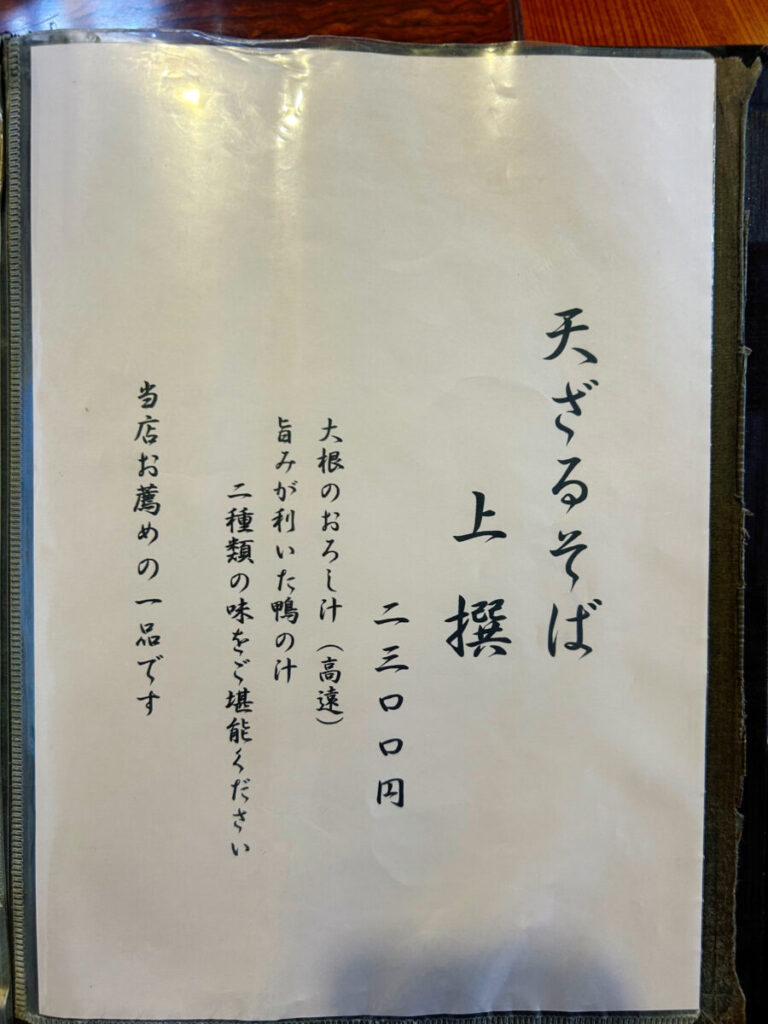 天ざるそば
上撰
二三〇〇円
大根のおろし汁(高遠)
旨みが利いた鴨の汁
二種類の味をご堪能ください
当店お薦めの一品です